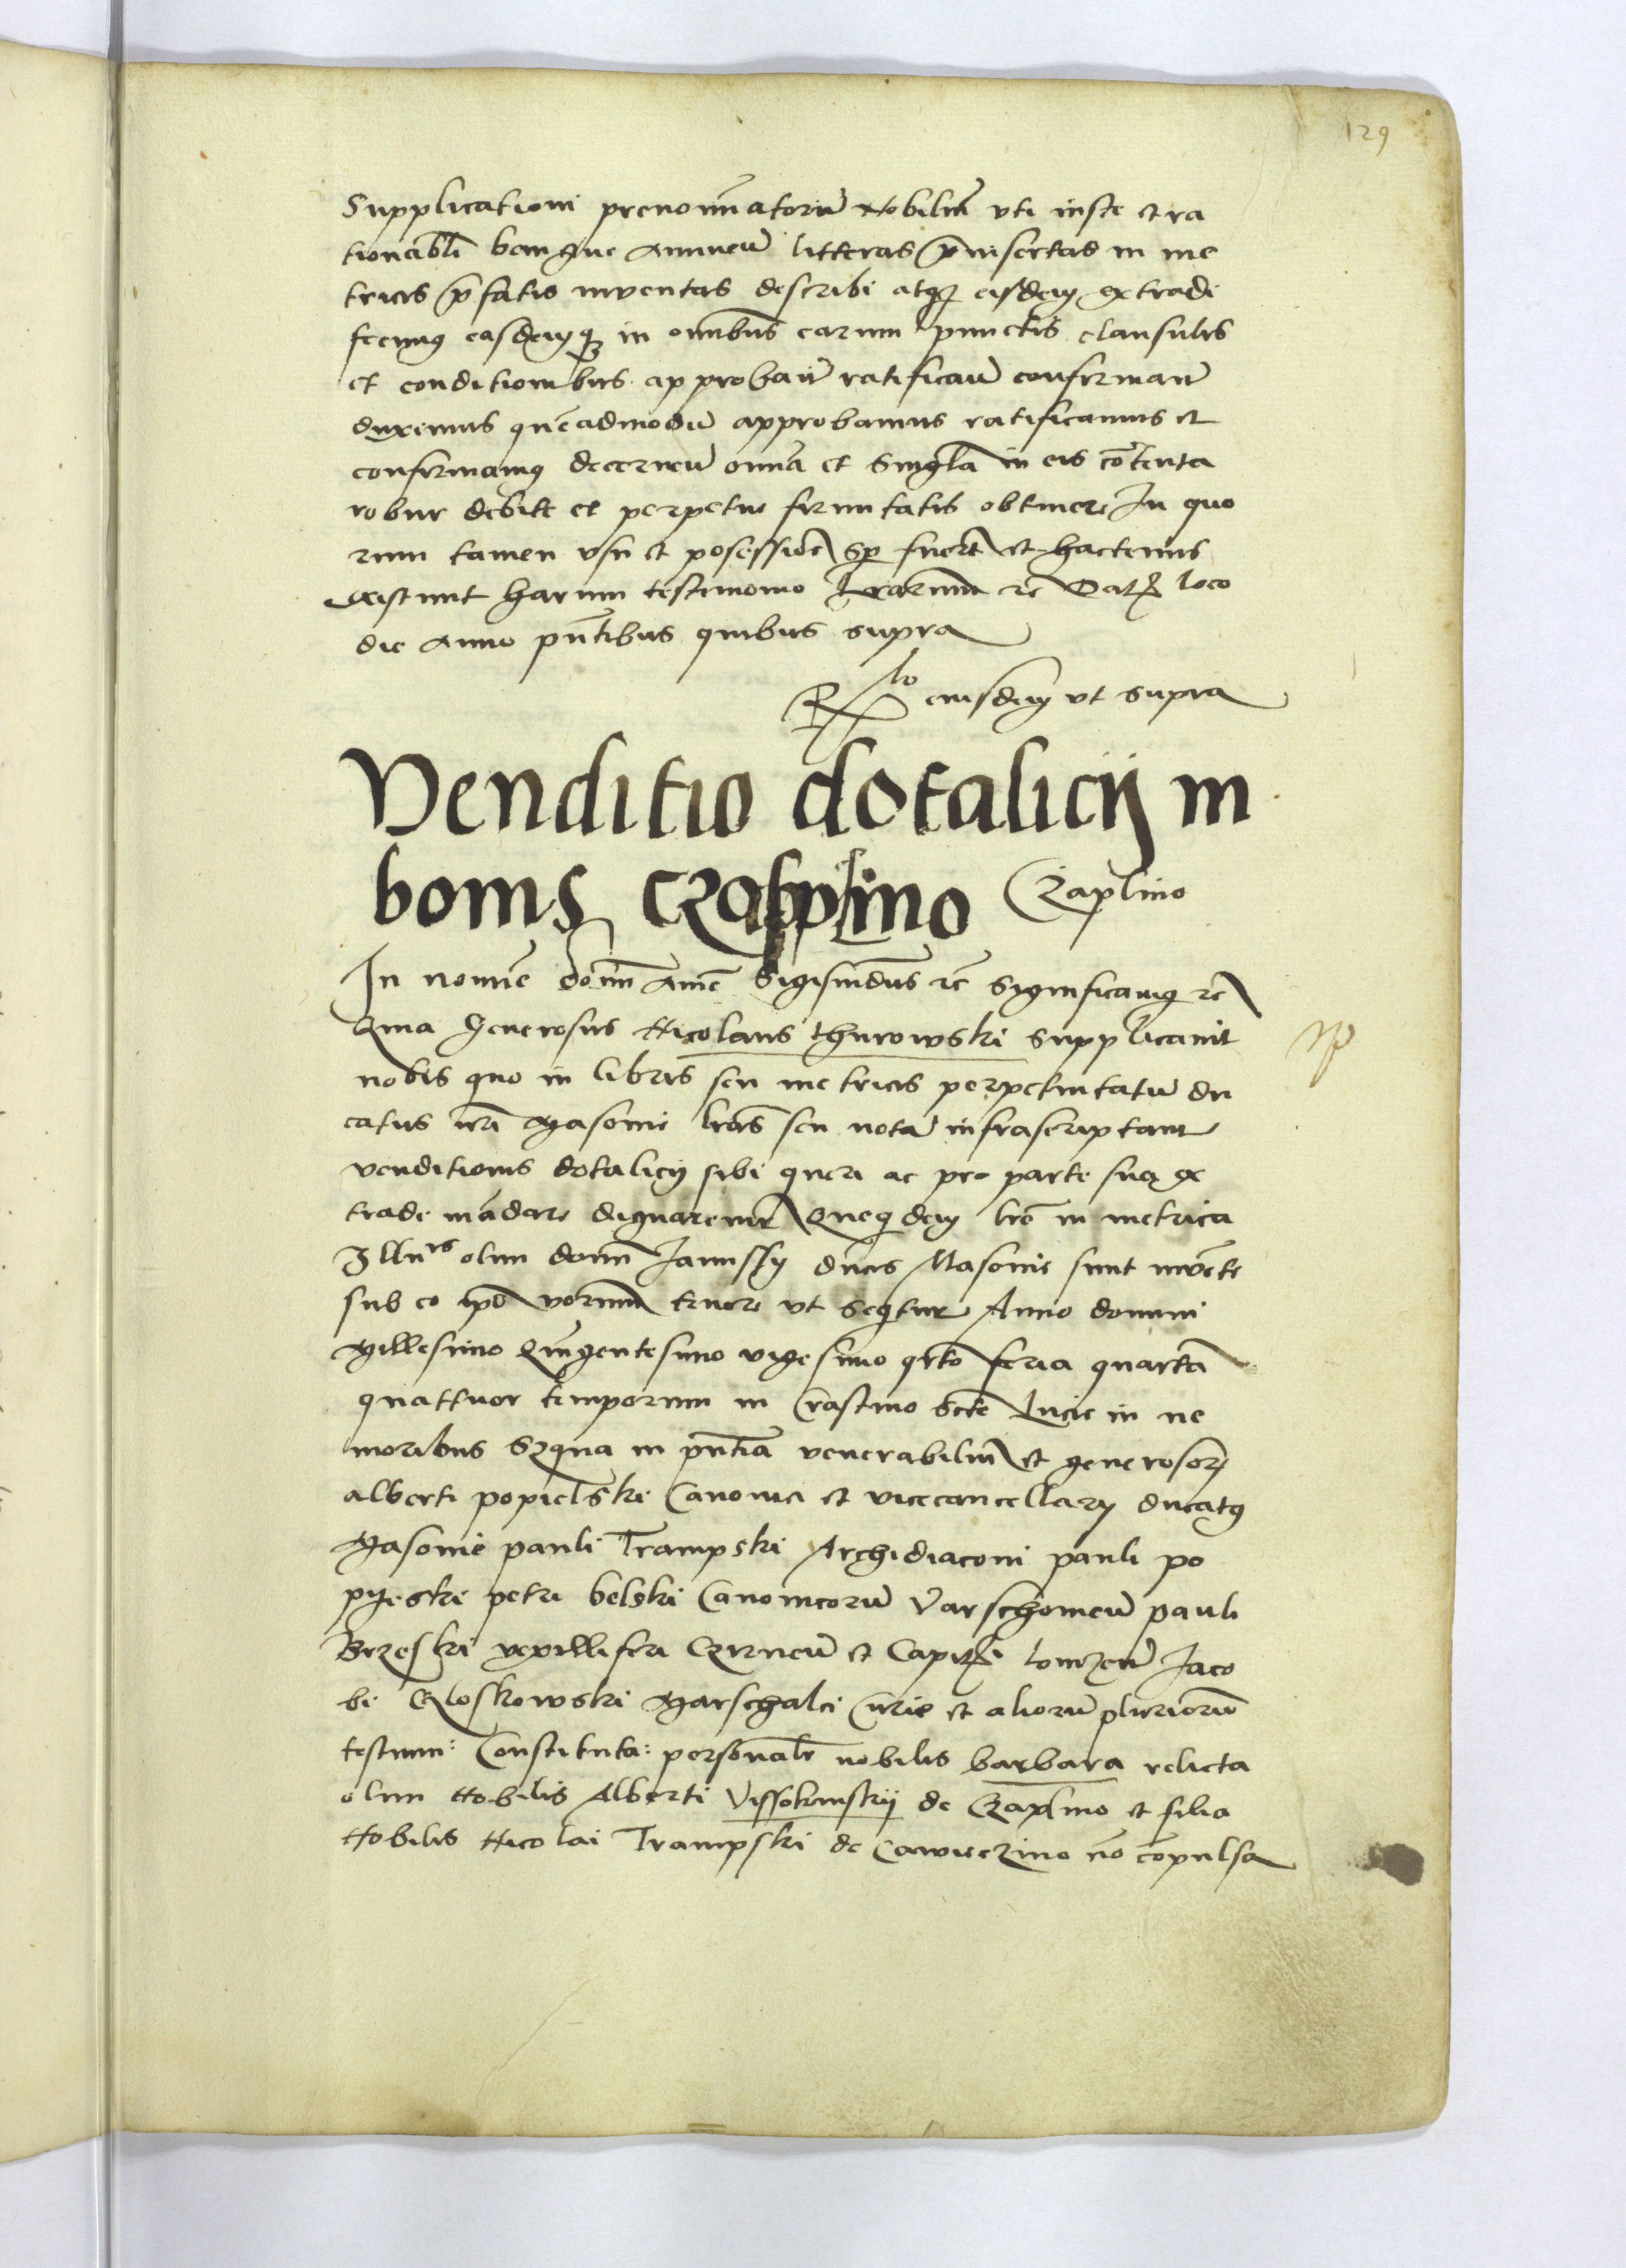 129
Supplicationi prenominatorum Nobilium vti iuste et ra
tionabli benigne annuen litteras preinsertas in me
tricis prefatis inventas describi atque eisdem extradi
fecimus easdemque in omnibus earum punctis clausulis
et conditionibus approban ratifican confirman
duximus quemadmodum approbamus ratificamus et
confirmamus decernen omnia et singula in eis contenta
robur debite et perpetue firmitatis obtinere In quo
rum tamen vsu et posessione fuerunt et hactenus
existunt harum testimonio literarum etc Datum loco
die anno presentibus quibus supra
Relatio eiusdem vt supra
Venditio dotalicij in
bonis Czaplino Czaplino
In nomine domini amen Sigismundus etc Significamus etc
Quia Generosus Nicolaus thurowski supplicauit
nobis quo in libris seu metricis perpetuitatum du
catus nostri Masouie literas seu notam infrascriptam
venditionis dotalicij sibi queri ac pro parte sua ex
trade mandare dignaremur Quequidem litere in metrica
Illustris olim domini Janussy ducis Masouie sunt invente
sub eo ipso verborum tenore vt sequitur Anno domini
Millesimo Quingentesimo vigesimo quarto feria quarta
quattuor temporum in Crastino sancte Lucie in ne
moribus in presentia venerabilium et generosorum
alberti popielski Canonici et vicecancellary ducatus
Masouie pauli Trampski Archidiaconi pauli po
pyeski petri belski Canonicorum Varschouien pauli
Brzeski vexilliferi Czirnen et Capitanei lomzen Jaco
bi Gloskowski Marschalci Curie et aliorum pluriorum
testium: Constituta: personaliter nobilis barbara relicta
olim Nobilis Alberti Vissokinskij de Czaplino et filia
Nobilis Nicolai Trampski de non compulsa